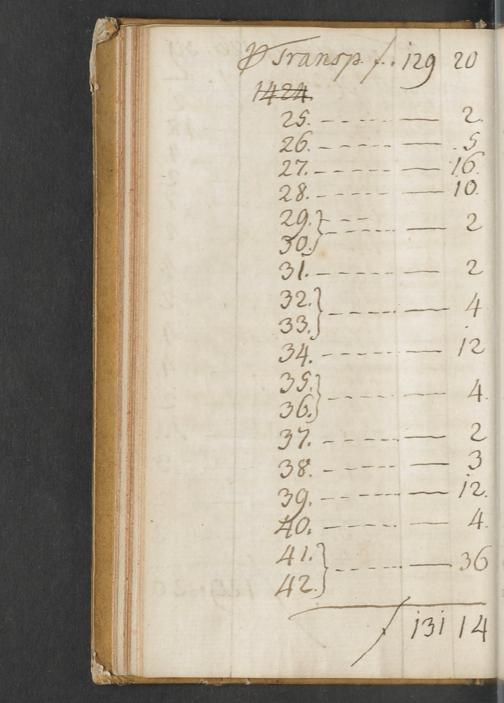 P Transp f. 129 20
1424.
25. - - - - - — 2.
26. - - - - - — 5
27. - - - - - — 16.
28. - - - - - — 10.
29. } - - -
30. } - - - - — 2
31. - - - - - — 2
32. }
33. } - - - - — 4
34. - - - - - — 12
35. }
36. } - - - - — 4.
37. - - - - - — 2
38. - - - - - — 3
39. - - - - - — 12.
40. - - - - - — 4.
41. }
42. } - - - - — 36
f 131 14